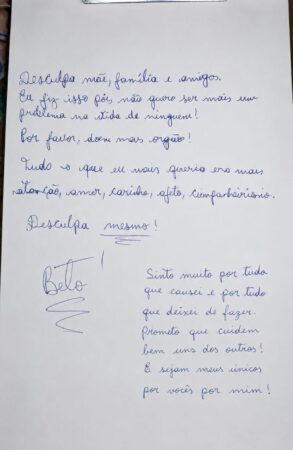 Desculpa mãe, família e amigos.
Eu fiz isso pois não quero ser mais um
problema na vida de ninguem!
Por favor, doem meus orgão!
Tudo o que eu mais queria era mais
atenção, amor, carinho, afeto, companheirismo.
Desculpa mesmo!
Beto!
Sinto muito por tudo
que causei e por tudo
que deixei de fazer.
Prometo que cuidem
bem uns dos outros!
E sejam meus únicos
por vocês por mim!